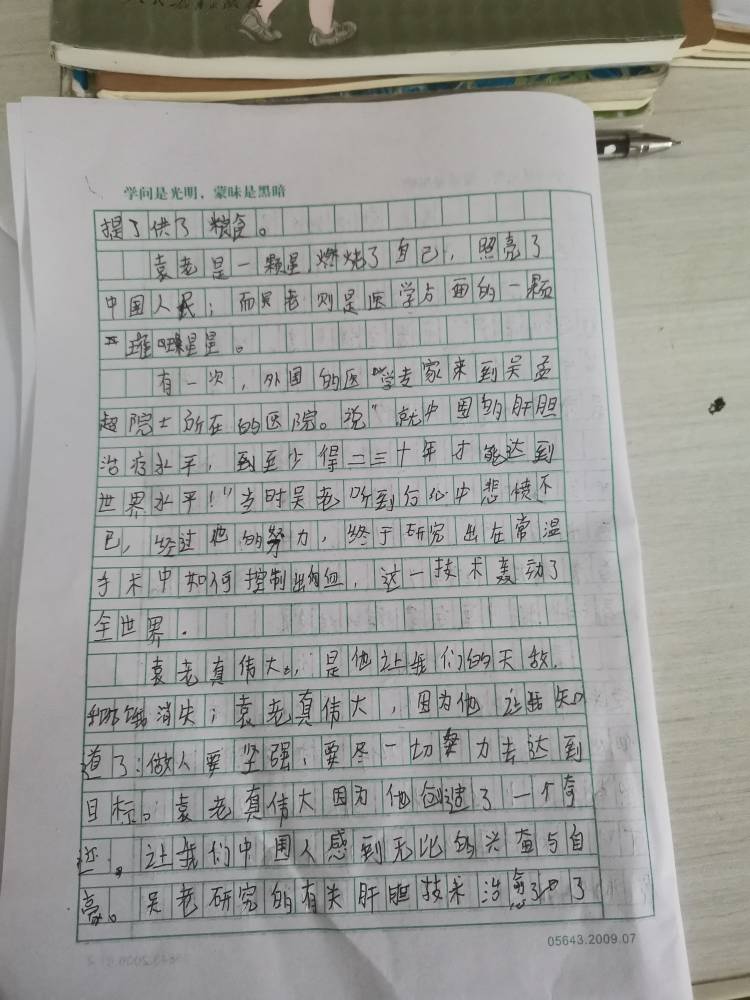 学问是光明，蒙昧是黑暗
提了供了粮食。
袁老是一颗星燃烧了自己，照亮了
中国人民；而吴老则是医学方面的一颗
璀璨星星。
有一次，外国的医学专家来到吴孟
超院士所在的医院。说"就中国的肝胆
治疗水平，到至少得二三十年才能达到
世界水平！"当时吴老听到后心中悲愤不
已，经过他的努力，终于研究出在常温
手术中如何控制出血，这一技术轰动了
全世界.
袁老真伟大，是他让我们的天敌，
饥饿消失；袁老真伟大，因为他让我知
道了：做人要坚强，要尽一切努力去达到
目标。袁老真伟大因为他创建了一个奇
迹。让我们中国人感到无比的兴奋与自
豪。吴老研究的有关肝胆技术治愈了
05643.2009.07